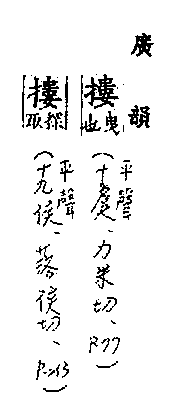 廣韻
摟曳也
(平聲十虞、力朱切、P.77)
摟探取
(平聲十九侯、落侯切、P.213)